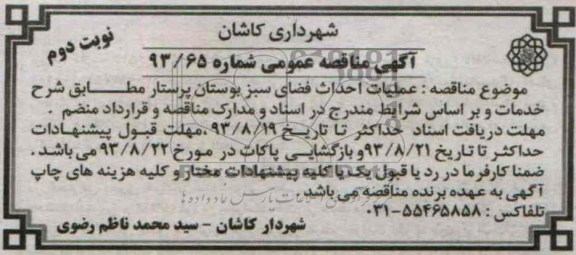 شهرداری کاشان
نوبت دوم
آگهی مناقصه عمومی شماره ۹۳/۶۵
موضوع مناقصه : عملیات احداث فضای سبز بوستان پرستار مطابق شرح
خدمات و بر اساس شرایط مندرج در اسناد و مدارک مناقصه و قرارداد منضم .
مهلت دریافت اسناد حداکثر تا تاریخ ۹۳/۸/۱۹ ،مهلت قبول پیشنهادات
حداکثر تا تاریخ ۹۳/۸/۲۱ و بازگشایی پاکات در مورخ ۹۳/۸/۲۲ می باشد .
ضمنا کارفرما در رد یا قبول یک یا کلیه پیشنهادات مختار و کلیه هزینه های چاپ
آگهی به عهده برنده مناقصه می باشد .
تلفاکس : ۵۵۴۶۵۸۵۸-۰۳۱
شهردار کاشان – سید محمد ناظم رضوی